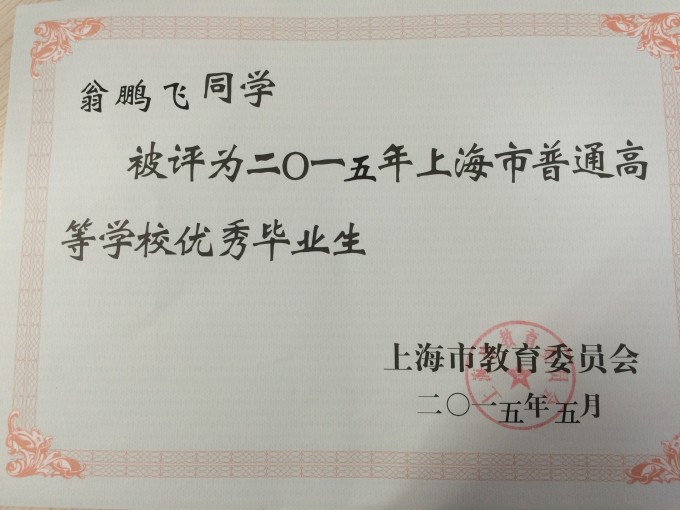 翁鹏飞同学
被评为二〇一五年上海市普通高
等学校优秀毕业生
上海市教育委员会
二〇一五年五月
上海市教育委员会